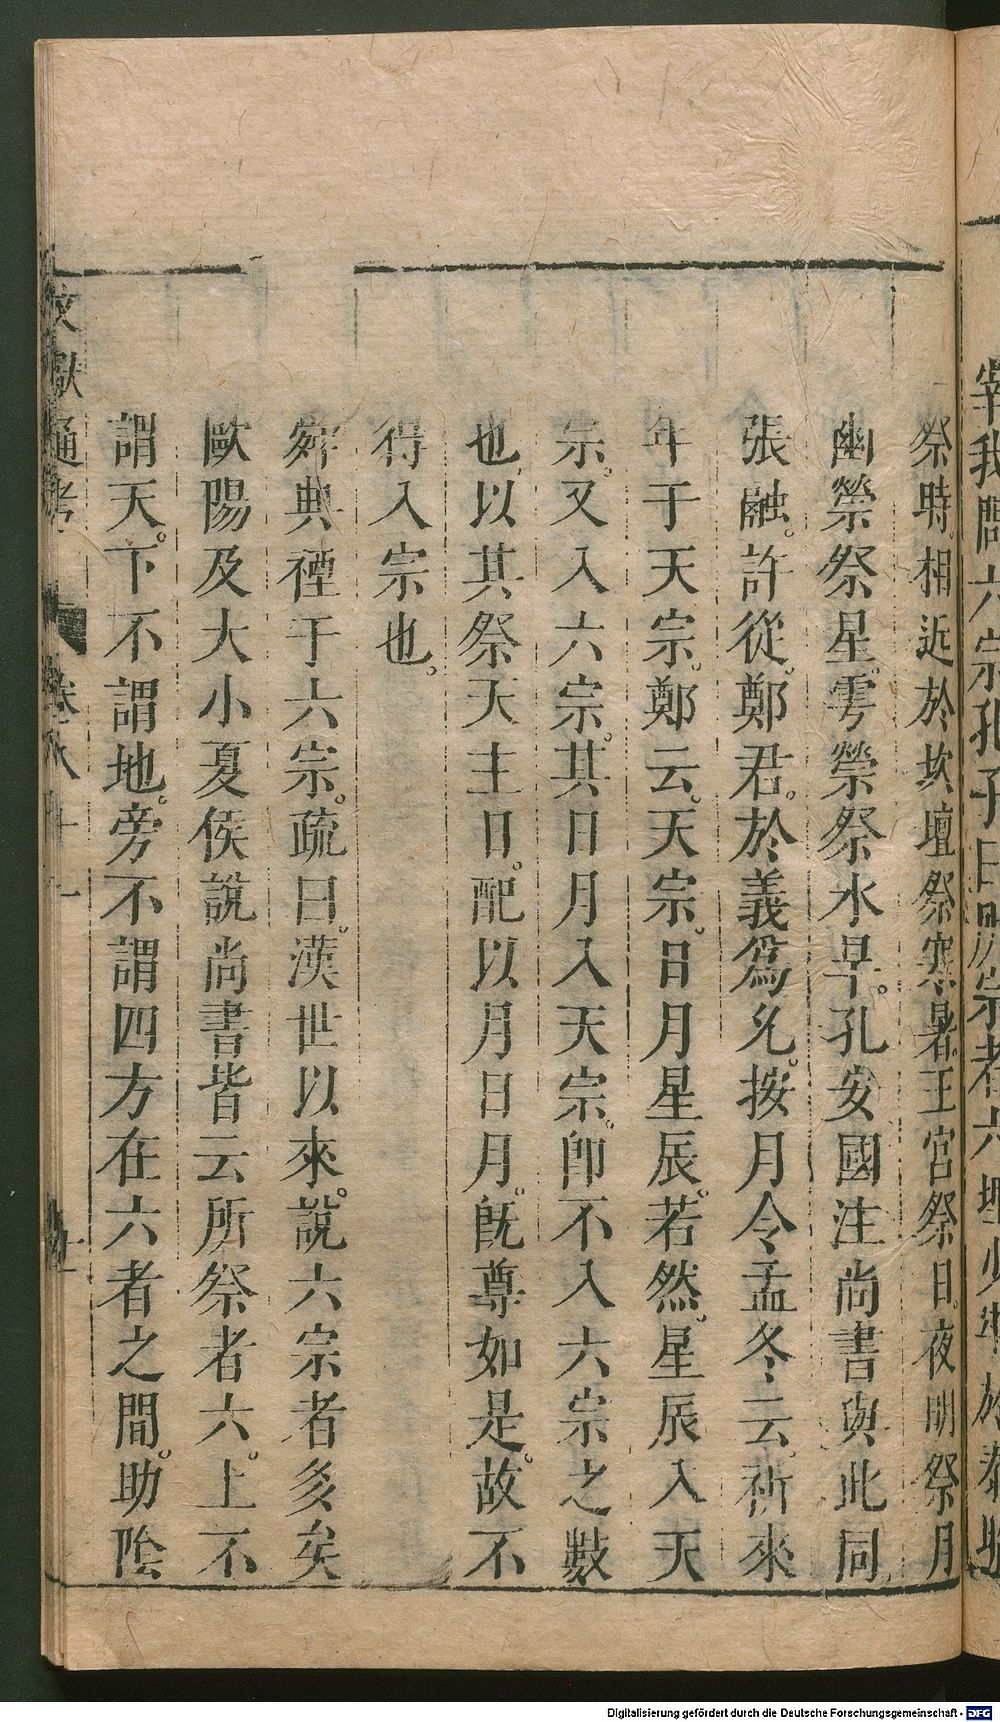 祭時相近於坎壇祭寒暑王宮祭日夜明祭月
幽禜祭星雩禜祭水旱孔安國注尚書與此同
張融許從鄭君於義爲允按月令孟冬云祈來
年于天宗鄭云天宗日月星辰若然星辰入天
宗又入六宗其日月入天宗即不入六宗之數
也以其祭天主日配以月日月旣尊如是故不
得入宗也
舜典禋于六宗疏曰漢世以來說六宗者多矣
歐陽及大小夏侯說尚書皆云所祭者六上不
謂天下不謂地旁不謂四方在六者之間助陰
文獻通考
卷八十一
宰我問六宗孔子曰所宗者六埋少牢於泰昭
Digitalisierung gefördert durch die Deutsche Forschungsgemeinschaft - DFG